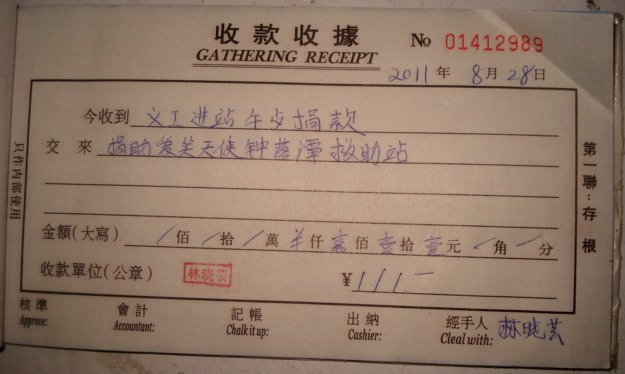 收款收據
№ 01412989
GATHERING RECEIPT
2011 年 8 月 28 日
今收到 义工进站午歺捐款
交 來 捐助爱笑天使钟 潭救助站
金額(大寫) / 佰 / 拾 / 萬 仟 佰 壹 拾 壹 元 / 角 / 分
收款單位(公章) 林晓芸 ¥111-
核準 會計 記帳 出納 經手人 林晓芸
Approve: Accountant: Chalk it up: Cashier: Cleal with:
只作內部使用
第一聯:存根